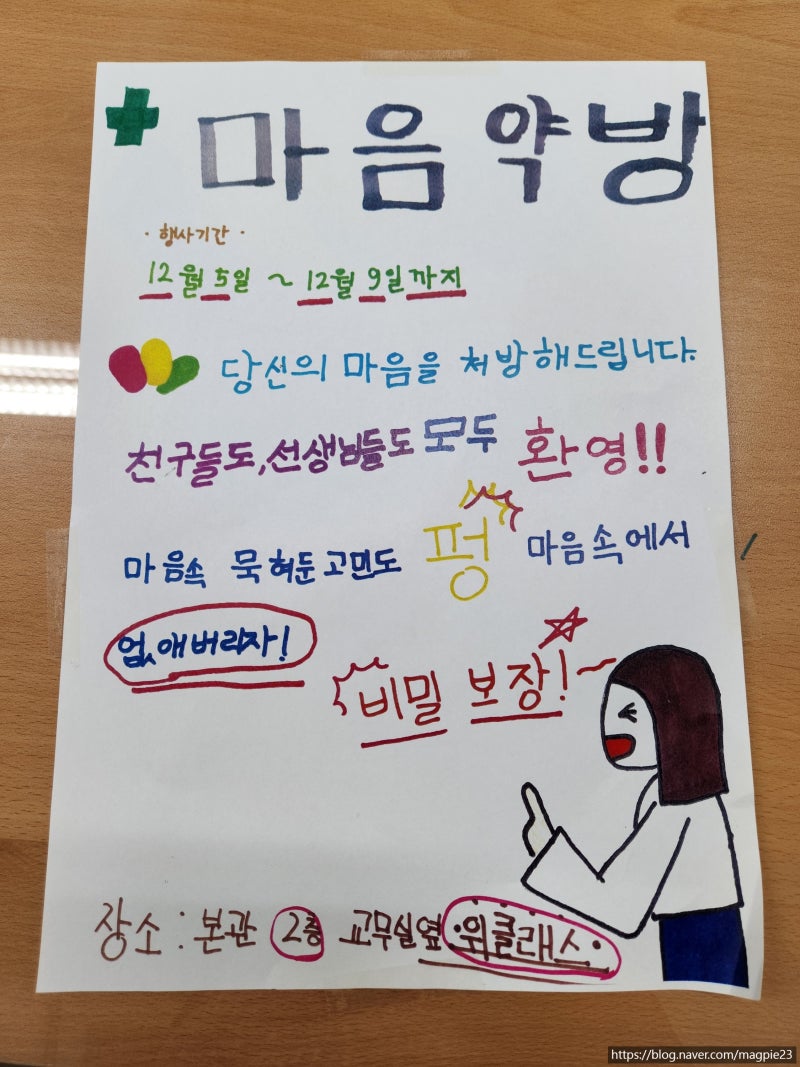 마음약방
· 행사기간 ·
12월 5일 ~ 12월 9일까지
당신의 마음을 처방해드립니다.
친구들도, 선생님들도 모두 환영!!
마음속 묵혀둔 고민도 펑 마음속에서
없애버리자!
비밀 보장!
장소 : 본관 2층 교무실옆 ·위클래스·
https://blog.naver.com/magpie23